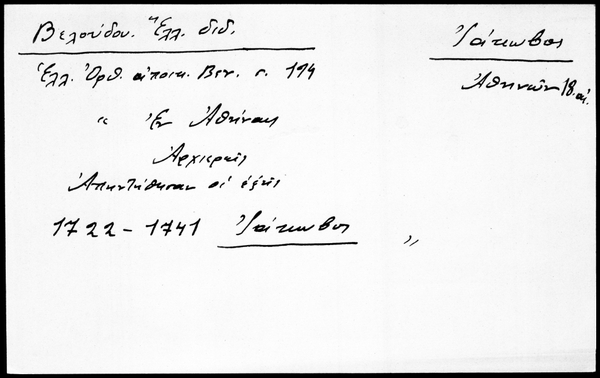 Βελούδου. Ἑλλ. διδ.
Ἰάκωβος
Ἀθηνῶν 18. αἰ.
Ἑλλ. Ὀρθ. ἀποικ. Βεν. σ. 194
" Ἐν Ἀθήναις
Ἀρχιερεῖς
Ἀπηντήθησαν οἱ ἑξῆς
1722 - 1741 Ἰάκωβος "